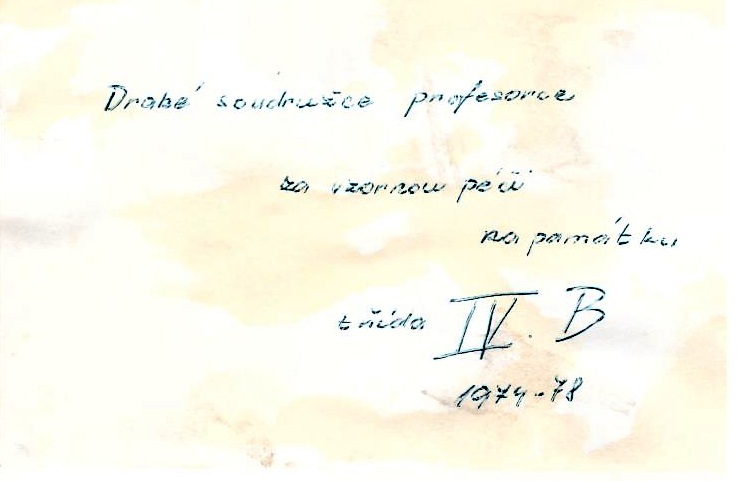 Drahé soudružce profesorce
za vzornou péči
na památku
třída IV. B
1974-78